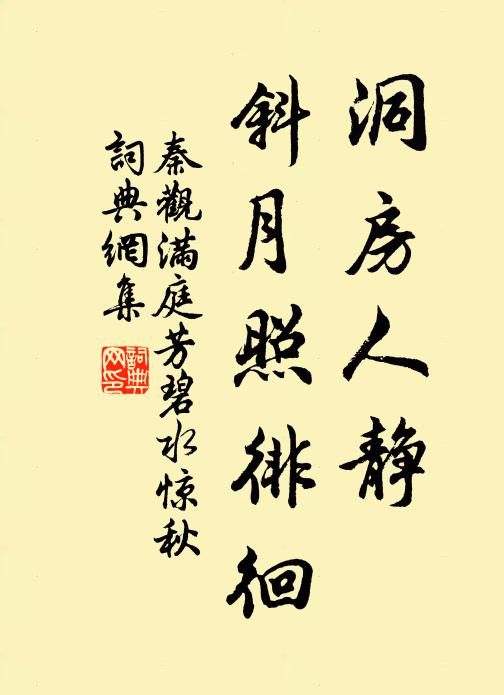 洞房人静
斜月照徘徊
秦觀满庭芳碧水惊秋
詞典網集
詞典网印